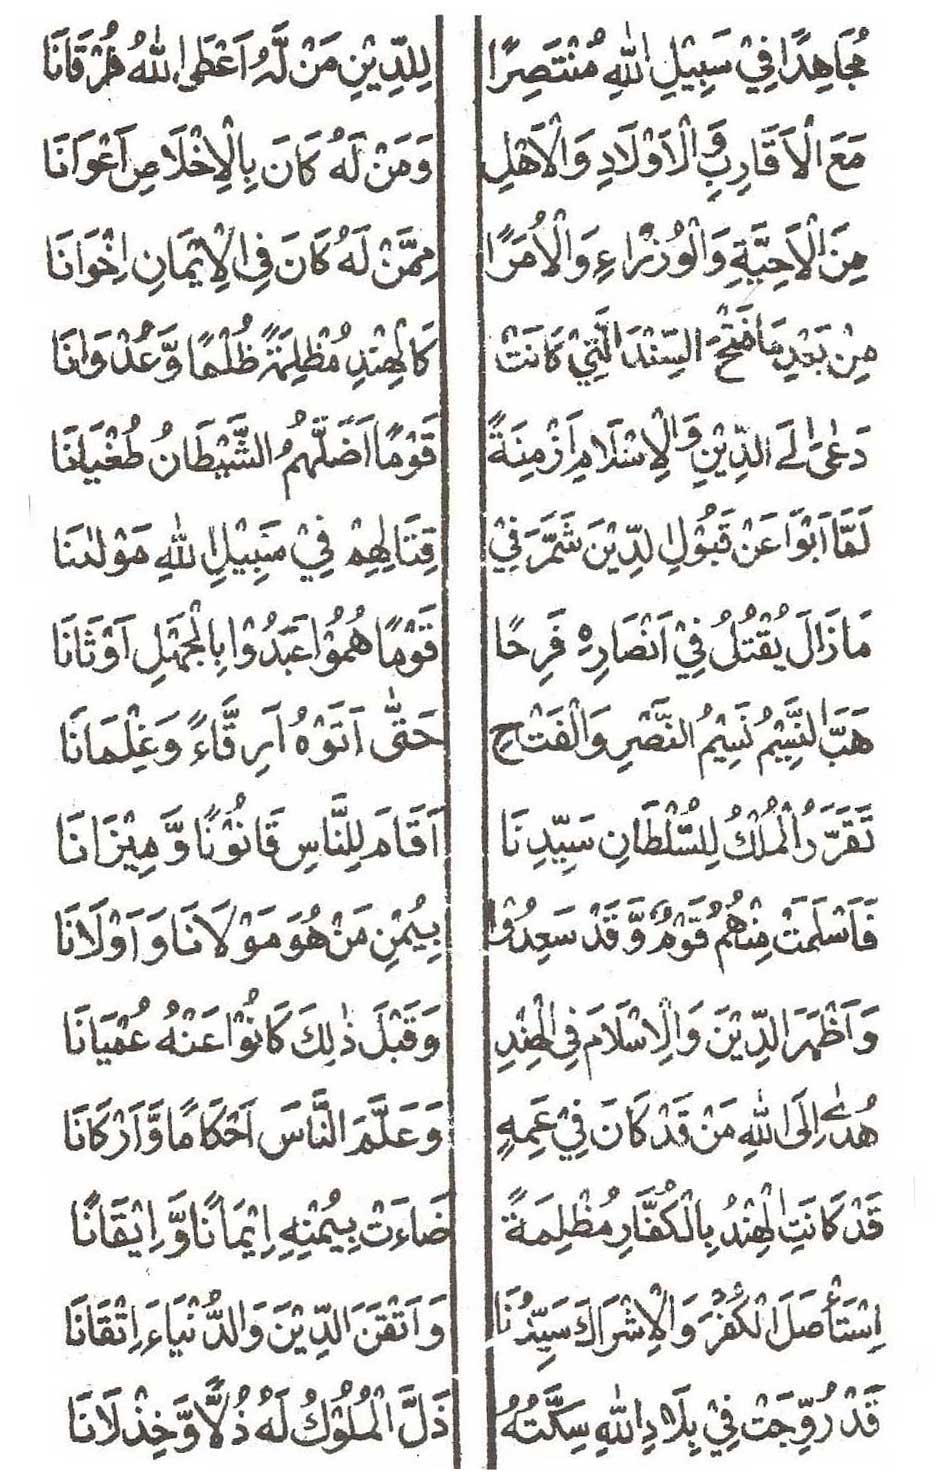 مُجَاهِدًا فِيْ سَبِيْلِ اللهِ مُنْتَصِرًا لِلدِّيْنِ مَنْ لَّهُ اَعْطَى اللهُ فُرْقَانَا
مَعَ الْاَقَارِبِ وَالْاَوْلَادِ وَالْاَهْلِ وَمَنْ لَهُ كَانَ بِالْاِخْلَاصِ اَعْوَانَا
مِنَ الْاَحِبَّةِ وَالْوُزَرَاءِ وَالْاُمَرَا مِمَّنْ لَهُ كَانَ فِى الْاِيْمَانِ اِخْوَانَا
مِنْ بَعْدِ مَا فَتَحَ السِّنْدَ الَّتِيْ كَانَتْ كَالْهِنْدِ مُظْلِمَةً ظُلْمًا وَّعُدْوَانَا
دَعٰى اِلَى الدِّيْنِ وَالْاِسْلَامِ اَزْمِنَةً قَوْمًا اَضَلَّهُمُ الشَّيْطَانُ طُغْيَانَا
لَمَّا اَبَوْا عَنْ قَبُوْلِ الدِّيْنَ شَمَّرَ فِيْ قِتَالِهِمْ فِيْ سَبِيْلِ اللهِ مَوْلٰنَا
مَا زَالَ يُقْتُلُ فِيْ اَنْصَارِهٖ فَرِحًا قَوْمًا هُمُوْا عَبَدُوْا بِالْجَهْلِ اَوْثَانَا
هَبَّ النَّسِيْمُ نَسِيْمُ النَّصْرِ وَالْفَتْحِ حَتّٰى اَتَوْهُ اَرِقَّاءً وَغِلْمَانَا
تَقَرَّرُ الْمُلْكُ لِلسُّلْطَانِ سَيِّدِنَا اَقَامَ لِلنَّاسِ قَانُوْنًا وَّمِيْزَانَا
فَاَسْلَمَتْ مِنْهُمُ قَوْمٌ وَّقَدْ سَعِدُوْا بِيُمْنِ مَنْ هُوَ مَوْلَانَا وَاَوْلَانَا
وَاَظْهَرَ الدِّيْنَ وَالْاِسْلَامَ فِى الْهِنْدِ وَقَبْلَ ذٰلِكَ كَانُوْا عَنْهُ عُمْيَانَا
هُدٰى اِلَى اللهِ مَنْ قَدْ كَانَ فِيْ عَمِهٍ وَعَلَّمَ النَّاسَ اَحْكَامًا وَّاَرْكَانَا
قَدْ كَانَتِ الْهِنْدُ بِالْكُفَّارِ مُظْلِمَةً ضَاءَتْ بِيُمْنِهٖ اِيْمَانًا وَّاِيْقَانًا
اِسْتَأْصَلَ الْكُفْرَ وَالْاِشْرَاكَ سَيِّدُنَا وَاَتْقَنَ الدِّيْنَ وَالدُّنْيَاءَ اِتْقَانَا
قَدْ رُوِّجَتْ فِيْ بِلَادِ اللهِ سِكَّتُهُ ذَلَّ الْمُلُوْكُ لَهُ ذُلًّا وَّخِذْلَانَا